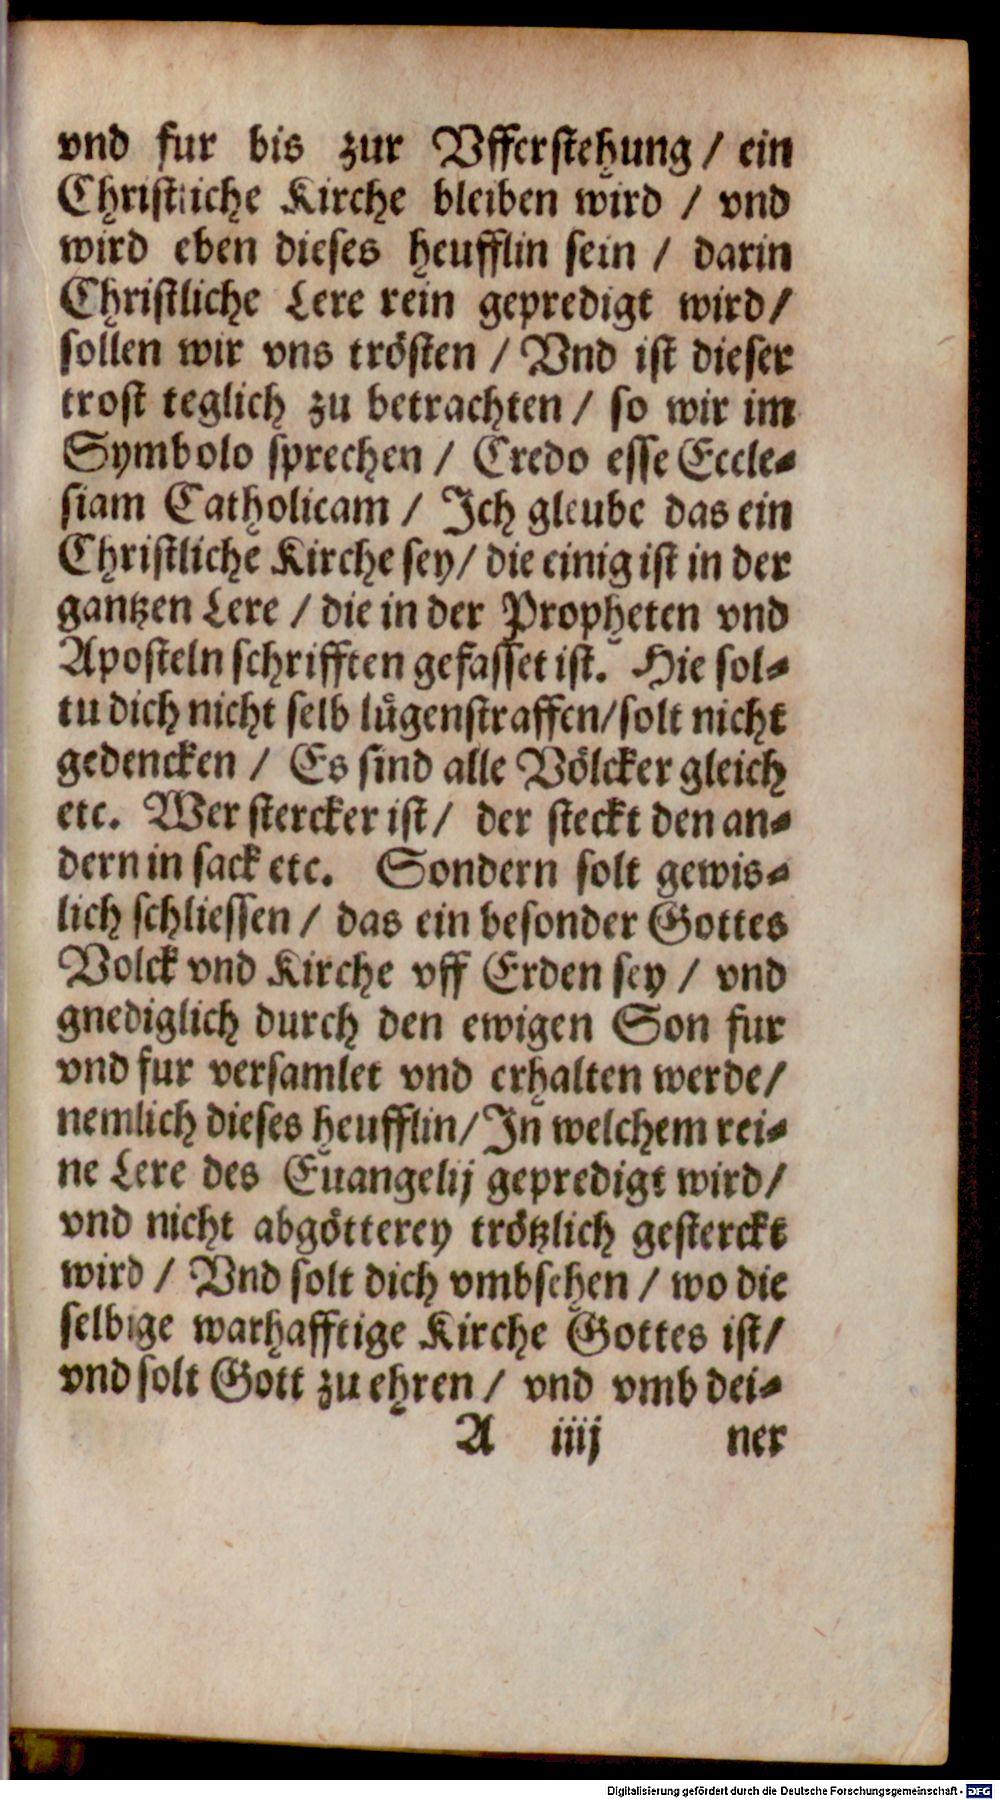 vnd fur bis zur Vfferstehung / ein
Christliche Kirche bleiben wird / vnd
wird eben dieses heufflin sein / darin
Christliche Lere rein gepredigt wird /
sollen wir vns trösten / Vnd ist dieser
trost teglich zu betrachten / so wir im
Symbolo sprechen / Credo esse Eccle-
siam Catholicam / Jch gleube das ein
Christliche Kirche sey / die einig ist in der
gantzen Lere / die in der Propheten vnd
Aposteln schrifften gefasset ist. Hie sol-
tu dich nicht selb lügenstraffen / solt nicht
gedencken / Es sind alle Völcker gleich
etc. Wer stercker ist / der steckt den an-
dern in sack etc. Sondern solt gewis-
lich schliessen / das ein besonder Gottes
Volck vnd Kirche vff Erden sey / vnd
gnediglich durch den ewigen Son fur
vnd fur versamlet vnd erhalten werde /
nemlich dieses heufflin / Jn welchem rei-
ne Lere des Euangelij gepredigt wird /
vnd nicht abgötterey trötzlich gesterckt
wird / Vnd solt dich vmbsehen / wo die
selbige warhafftige Kirche Gottes ist /
vnd solt Gott zu ehren / vnd vmb dei-
A iiij ner
Digitalisierung gefördert durch die Deutsche Forschungsgemeinschaft - DFG